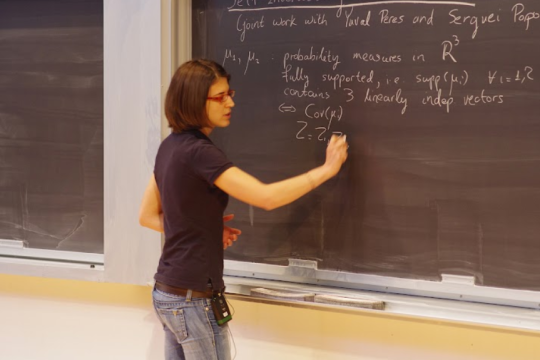 (joint work with Yuval Peres and Serguei Popo
μ₁, μ₂ probability measures in ℝ³
fully supported, i.e. supp(μᵢ) ∀i=1,2
contains 3 linearly indep vectors
⇔ Cov(μᵢ)
Z = Z₁